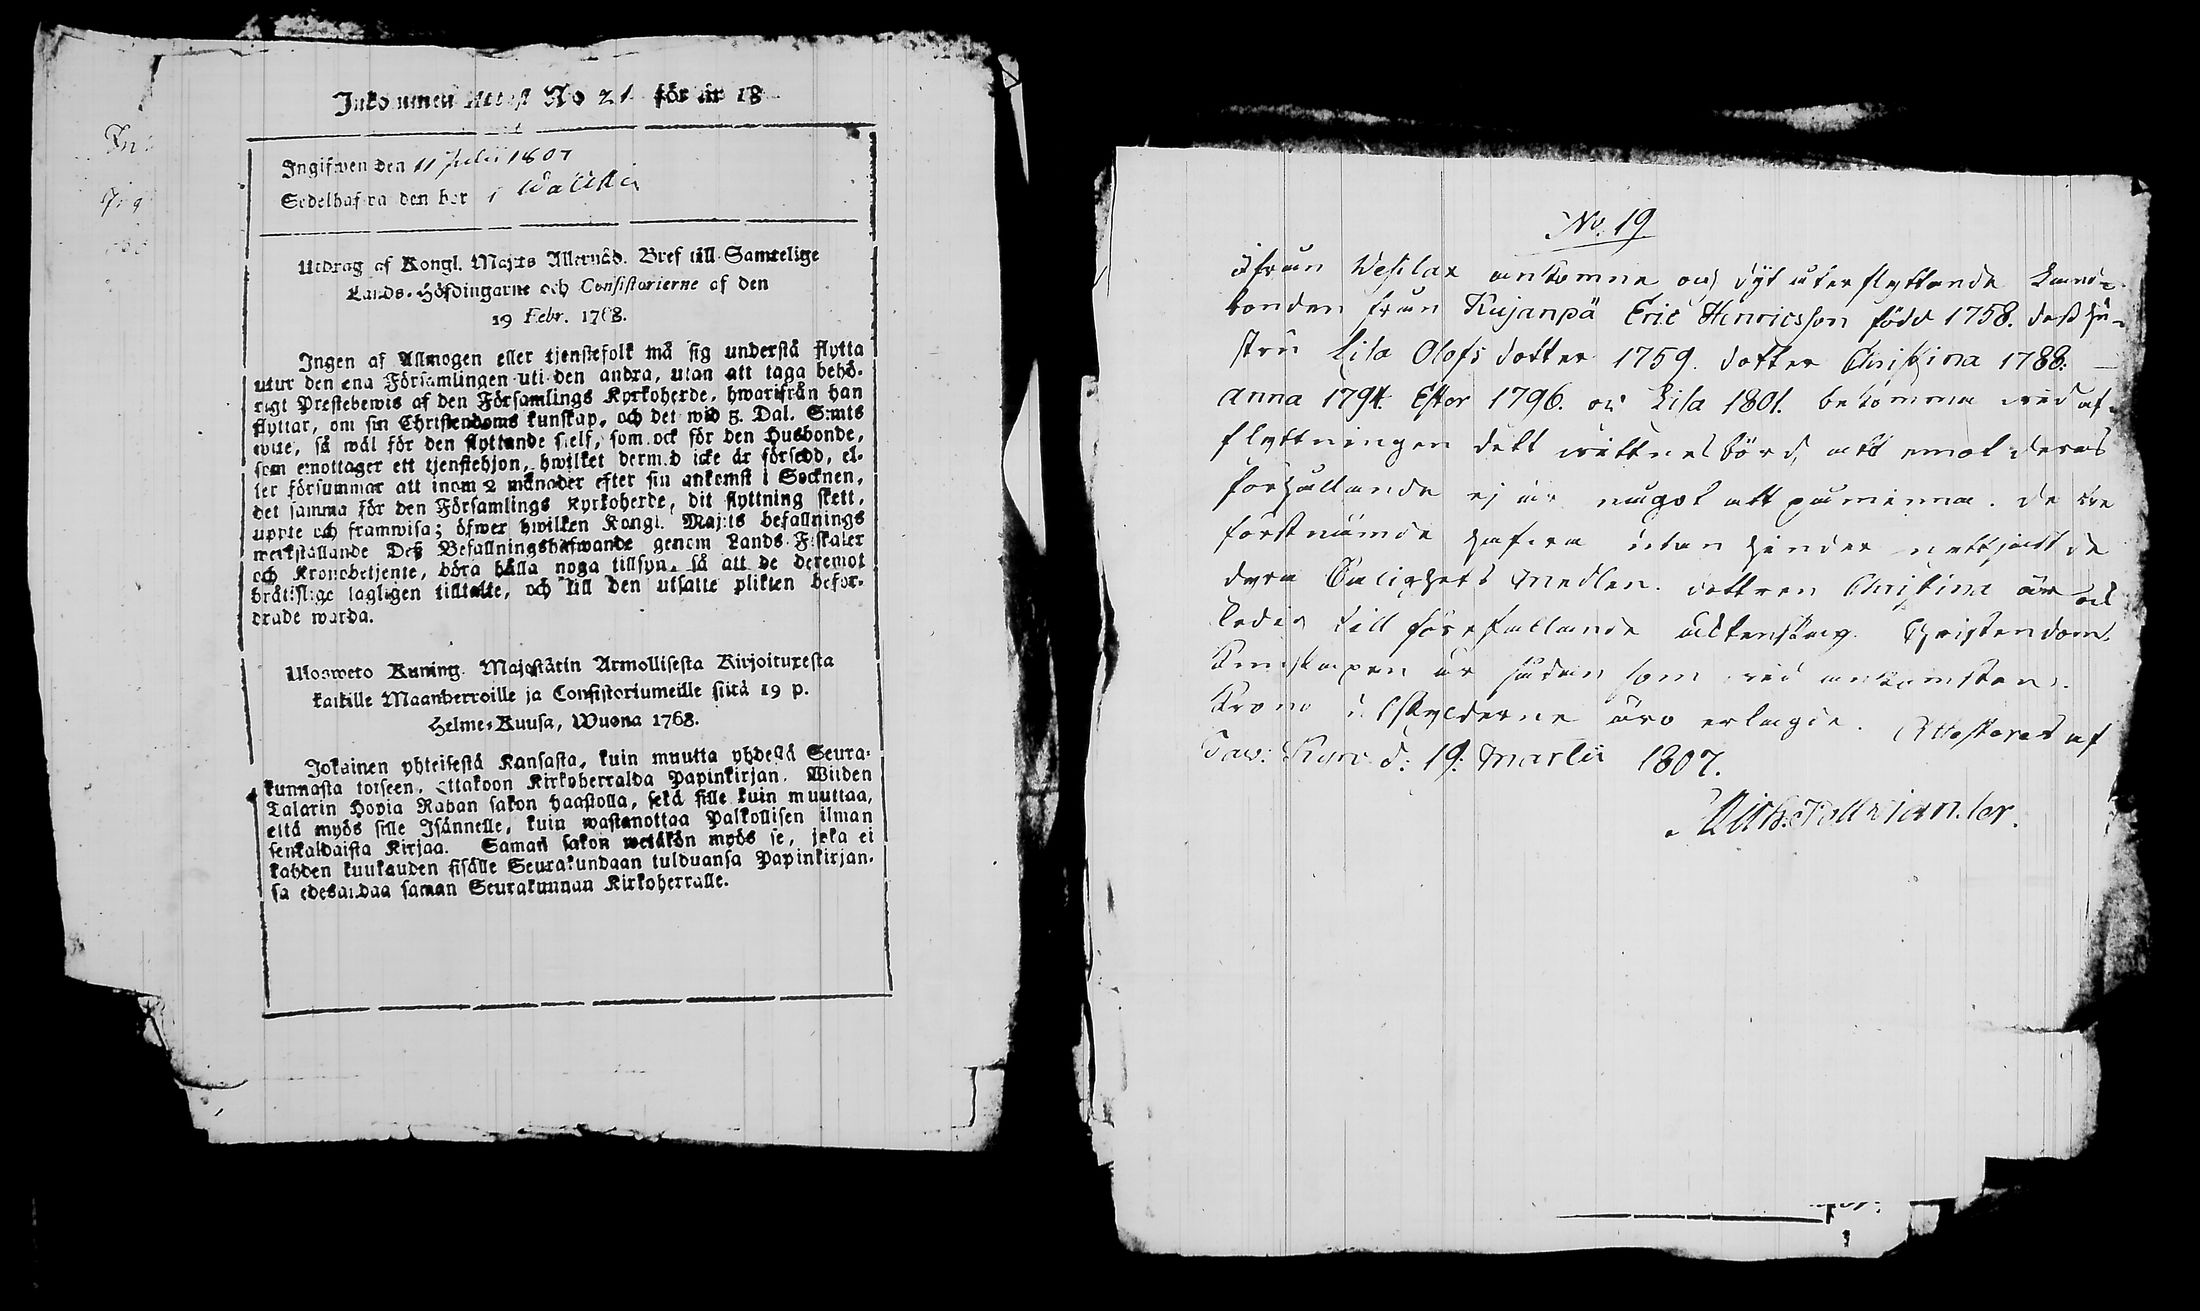 Inkommen Attest No 21 för år 18
Ingifwen den 11 Julii 1807
Sedelhafwa den bor i
Utdrag af Kongl. Maj:ts Allernåd. Bref till Samtelige
Lands-Höfdingarne och Consistorierne af den
19 Febr. 1768.
Ingen af Allmogen eller tjenstefolk må sig understå flytta
utur den ena Församlingen uti den andra, utan att taga behö-
rigt Prestebewis af den Församlings Kyrkoherde, hwarifrån han
flyttar, om sin Christendoms kunskap, och det wid 3. Dal. S:mts
wite, så wäl för den flyttande sielf, som ock för den Husbonde,
som emottager ett tjenstehjon, hwilket dermed icke är försedd, el-
ler försummar att inom 2 månader efter sin ankomst i Socknen,
det samma för den Församlings Kyrkoherde, dit flyttning skett,
uppte och framwisa; öfwer hwilken Kongl. Maj:ts befallnings
werkställande Deß Befallningshafwande genom Lands-Fiskaler
och Kronobetjente, böra hålla noga tillsyn, så att de deremot
brätislige lagligen tilltalte, och till den utsatte plikten befor-
drade warda.
Ulosweto Kuning. Majestätin Armollisesta Kirjoituxesta
kaikille Maanherroille ja Consistoriumeille siitä 19 p.
Helme-Kuusa, Wuona 1768.
Jokainen yhteisestä Kansasta, kuin muutta yhdestä Seura-
kunnasta toiseen, Ottakoon Kirkoherralda Papinkirjan, Wiiden
Talarin Hopia Rahan sakon haastolla, sekä sille kuin muuttaa,
että myös sille Isännelle, kuin wastanottaa Palkollisen ilman
senkaldaista Kirjaa. Saman sakon wetäkön myös se, joka ei
kahden kuukauden sisälle Seurakundaan tulduansa Papinkirjan-
sa edesandaa saman Seurakunnan Kirkoherralle.
No. 19
ifrån Wesilax ankomne och dyt återflyttande Land-
bonden från Kujanpä Eric Henricsson född 1758. deß hu-
stru Lisa Olofs dotter 1759. dotter Christina 1788.
Anna 1794. Ester 1796. och Lisa 1801. bekomma wid af-
flyttningen dett wittnesbörd, att emot deras
förhållande ej är något att påminna. De tre
förstnämde hafwa utan hinder nattjadt de
dyra Salighets Medlen. dottren Christina är ock
ledig till förefallande äcktenskap. Christendoms
Kunskapen är sådan som wid ankomsten.
Krono utskylderne äro erlagde. Attesteras af
Taw: Kyro d: 19: Martii 1807.